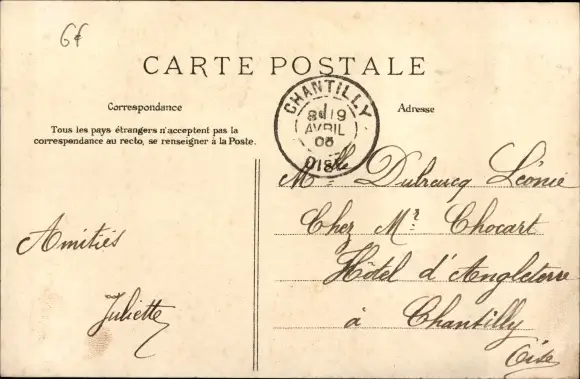 6f
CARTE POSTALE
Correspondance
Adresse
Tous les pays étrangers n'acceptent pas la
correspondance au recto, se renseigner à la Poste.
CHANTILLY
19
AVRIL
OISE
Amitiés
Juliette
Mlle Dubreucq Léonie
Chez Mr Chocart
Hôtel d'Angleterre
à Chantilly
Oise